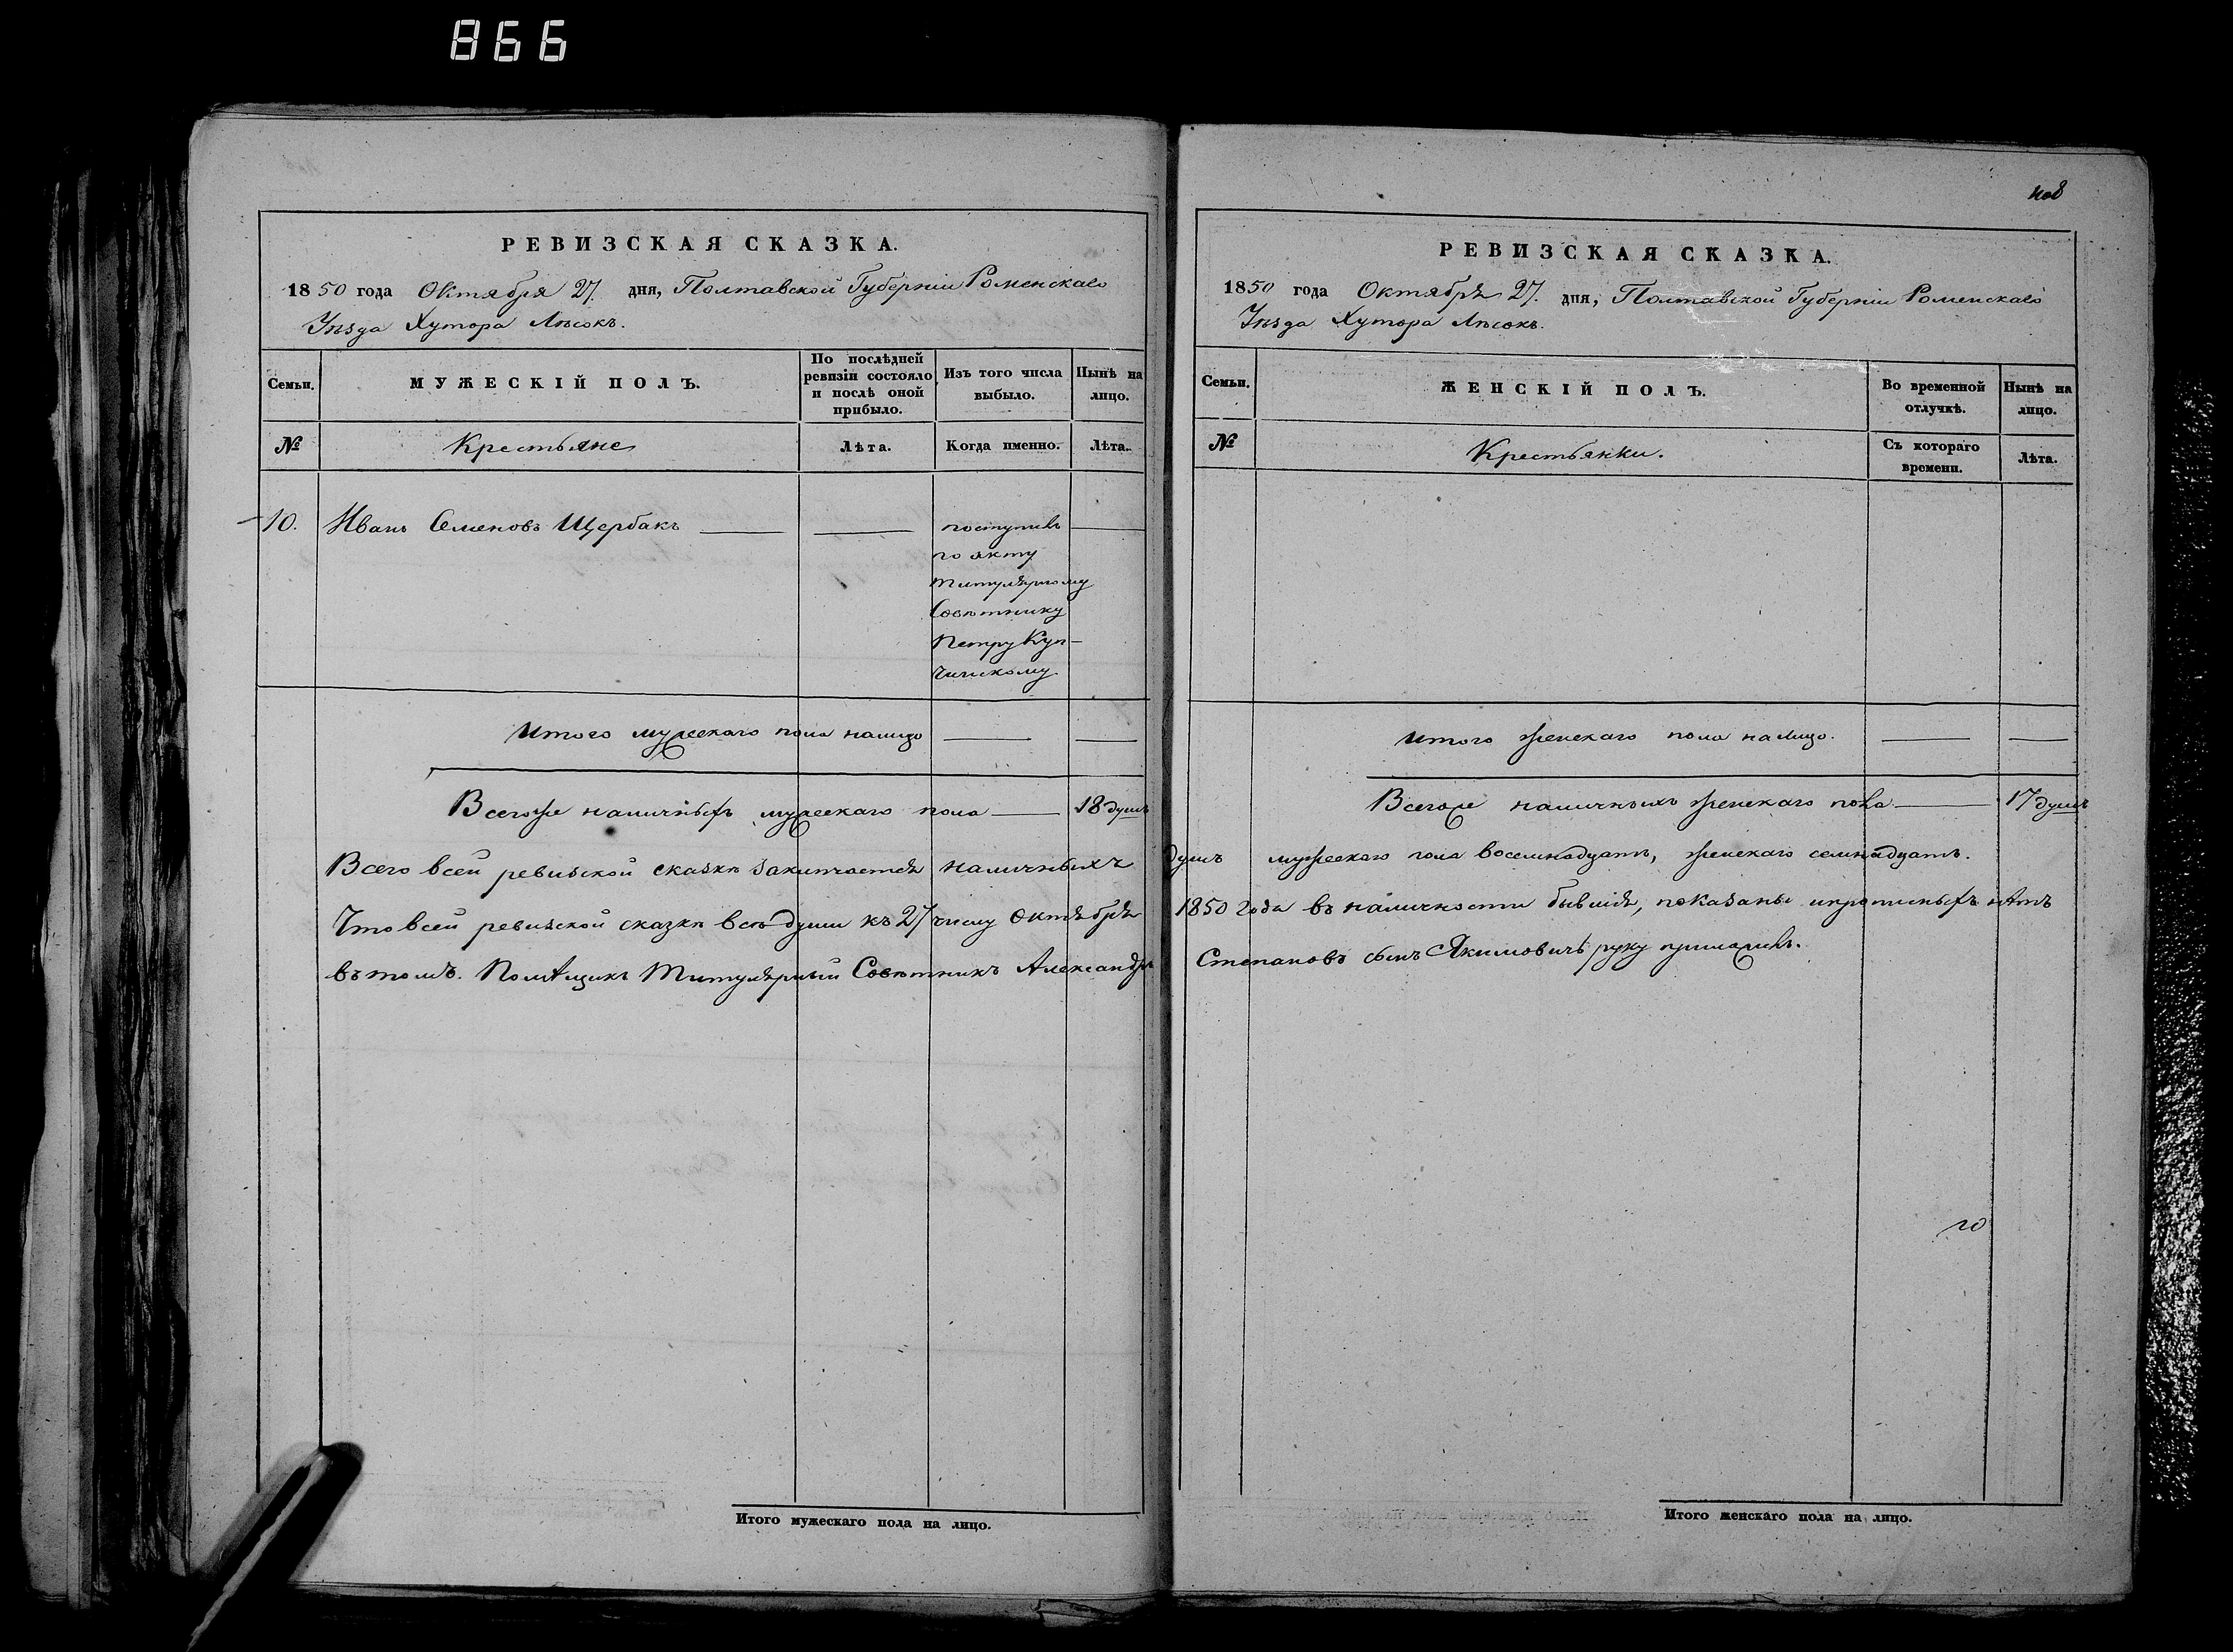 866
РЕВИЗСКАЯ СКАЗКА.
1850 года Октября 27. дня, Полтавской Губерніи Роменскаго
Уѣзда Хутора Лѣсокъ.
Семьи.
МУЖЕСКІЙ ПОЛЪ.
По послѣдней ревизіи состояло и послѣ оной прибыло.
Изъ того числа выбыло.
Нынѣ на лицо.
№
Крестьяне
Лѣта.
Когда именно.
Лѣта.
10. Иванъ Семеновъ Щербакъ
поступилъ
по акту
титулярному
Совѣтнику
Петру Куп-
чинскому
Итого мужескаго пола налицо
Всегоже наличныхъ мужескаго пола 18 душъ
РЕВИЗСКАЯ СКАЗКА.
1850 года Октября 27. дня, Полтавской Губерніи Роменскаго
Уѣзда Хутора Лѣсокъ.
Семьи.
ЖЕНСКІЙ ПОЛЪ.
Во временной отлучкѣ.
Нынѣ на лицо.
№
Крестьянки.
Съ котораго времени.
Лѣта.
Итого женскаго пола налицо.
Всегоже наличныхъ женскаго пола 17 душъ
Всего всей ревизской сказкѣ заключается наличныхъ душъ мужескаго пола восемнадцать, женскаго семнадцать.
Что всей ревизской сказкѣ всѣ души къ 27 числу Октября 1850 года въ наличности бывшія, показаны и прописныхъ нѣтъ
въ томъ. Помѣщикъ Титулярный Совѣтникъ Александръ Степановъ сынъ Якимовичъ руку приложилъ.
Итого мужескаго пола на лицо.
Итого женскаго пола на лицо.